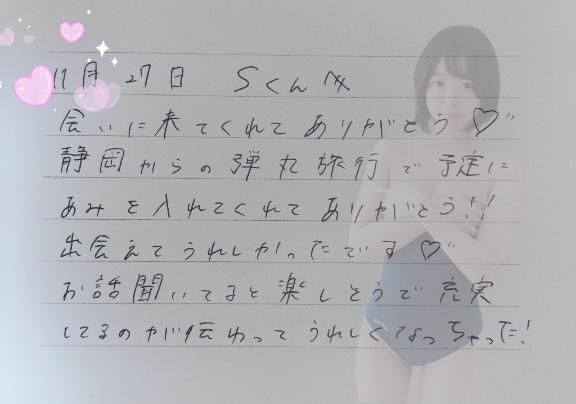 11月27日 Sくんへ
会いに来てくれてありがとう♡"
静岡からの弾丸旅行で予定に
あみを入れてくれてありがとう!!
出会えてうれしかったです♡"
お話聞いてると楽しそうで充実
してるのが伝わってうれしくなっちゃった!